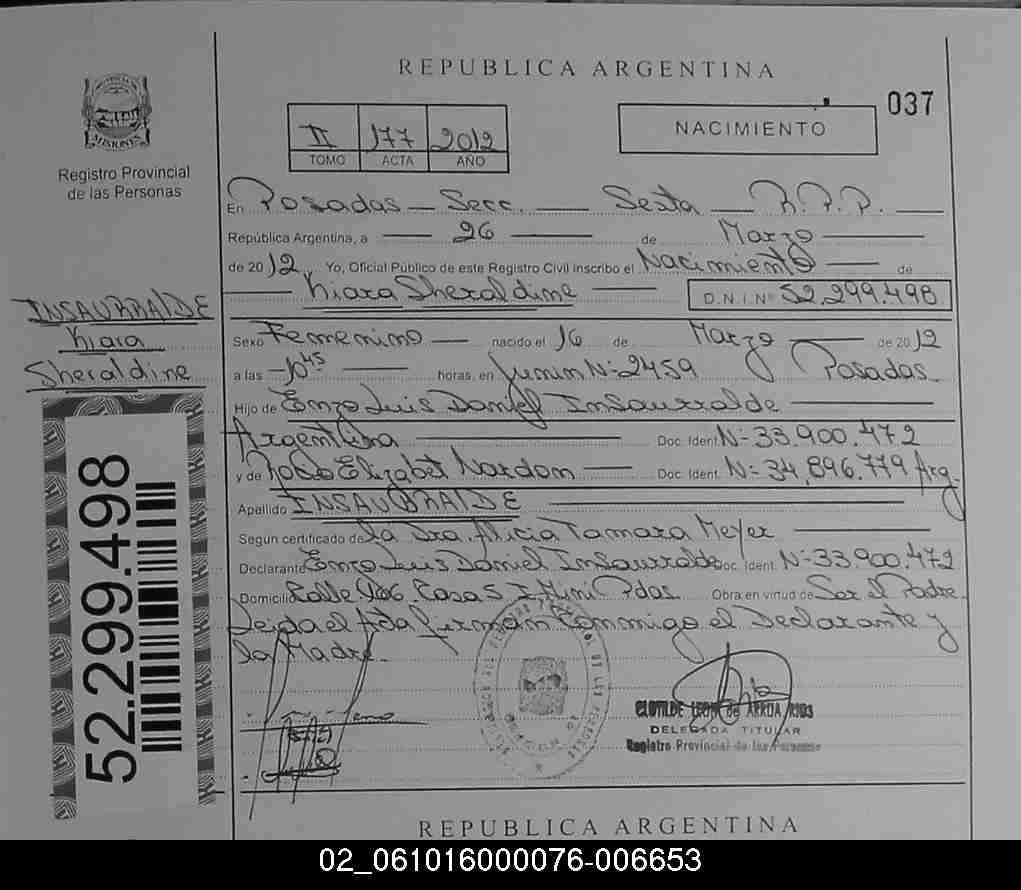 REPUBLICA ARGENTINA
037
MISIONES
Registro Provincial
de las Personas
II 177 2012
TOMO ACTA AÑO
NACIMIENTO
En Posadas — Secc. — Sexta — R.P.P. —
República Argentina, a — 26 — de Marzo —
de 2012, Yo, Oficial Público de este Registro Civil inscribo el Nacimiento — de
— Kiara Sheraldine — D.N.I. Nº 52.299.498
INSAURRALDE
Kiara
Sheraldine
Sexo Femenino — nacido el 16 de Marzo — de 2012
a las —10 45 — horas, en Junin Nº: 2459 Posadas.
Hijo de Enzo Luis Daniel Insaurralde —
Argentina — Doc. Ident. Nº 33.900.472
y de Rocio Elizabet Nardon — Doc. Ident. Nº 34,896.779 Arg.
Apellido INSAURRALDE —
Según certificado de la Dra. Alicia Tamara Meyer —
Declarante Enzo Luis Daniel Insaurralde Doc. Ident. Nº 33.900.472
Domicilio Calle Casa 5 Pdas. Obra en virtud de Ser el Padre.
Leida el Acta firman Conmigo el Declarante y
la Madre.
52.299.498
CLOTILDE LEON de ARRUA RIOS
DELEGADA TITULAR
Registro Provincial de las Personas
REPUBLICA ARGENTINA
02_061016000076-006653